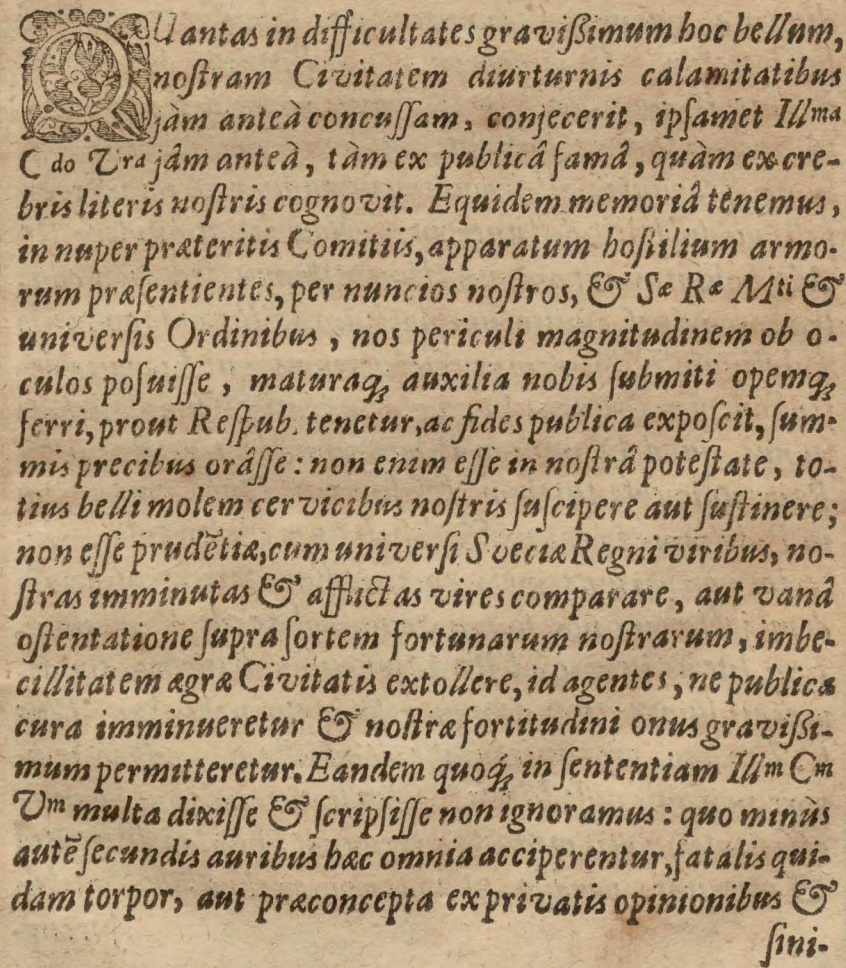 QUantas in difficultates gravißimum hoc bellum,
noſtram Civitatem diurturnis calamitatibus
jàm anteà concuſſam, conjecerit, ipſamet Illma
C do Vra jâm anteà, tàm ex publicâ famâ, quàm ex cre-
bris literis noſtris cognovit. Equidem memoriâ tenemus,
in nuper præteritis Comitiis, apparatum hoſtilium armo-
rum præſentientes, per nuncios noſtros, & Sæ Ræ Mti &
univerſis Ordinibus, nos periculi magnitudinem ob o-
culos poſuiſſe, maturaq́ꝫ auxilia nobis ſubmiti opemq́ꝫ
ferri, prout Reſpub. tenetur, ac fides publica expoſcit, ſum-
mis precibus orâſſe: non enim eſſe in noſtrâ poteſtate, to-
tius belli molem cervicibus noſtris ſuſcipere aut ſuſtinere;
non eſſe prudētiæ, cum univerſi Sveciæ Regni viribus, no-
ſtras imminutas & afflictas vires comparare, aut vanâ
oſtentatione ſupra ſortem fortunarum noſtrarum, imbe-
cillitatem ægræ Civitatis extollere, id agentes, ne publica
cura imminueretur & noſtræ fortitudini onus gravißi-
mum permitteretur. Eandem quoq́ꝫ in ſententiam Illm Cm
Vm multa dixiſſe & ſcripſiſſe non ignoramus: quo minùs
autē ſecundis auribus hæc omnia acciperentur, fatalis qui-
dam torpor, aut præconcepta ex privatis opinionibus &
ſini-